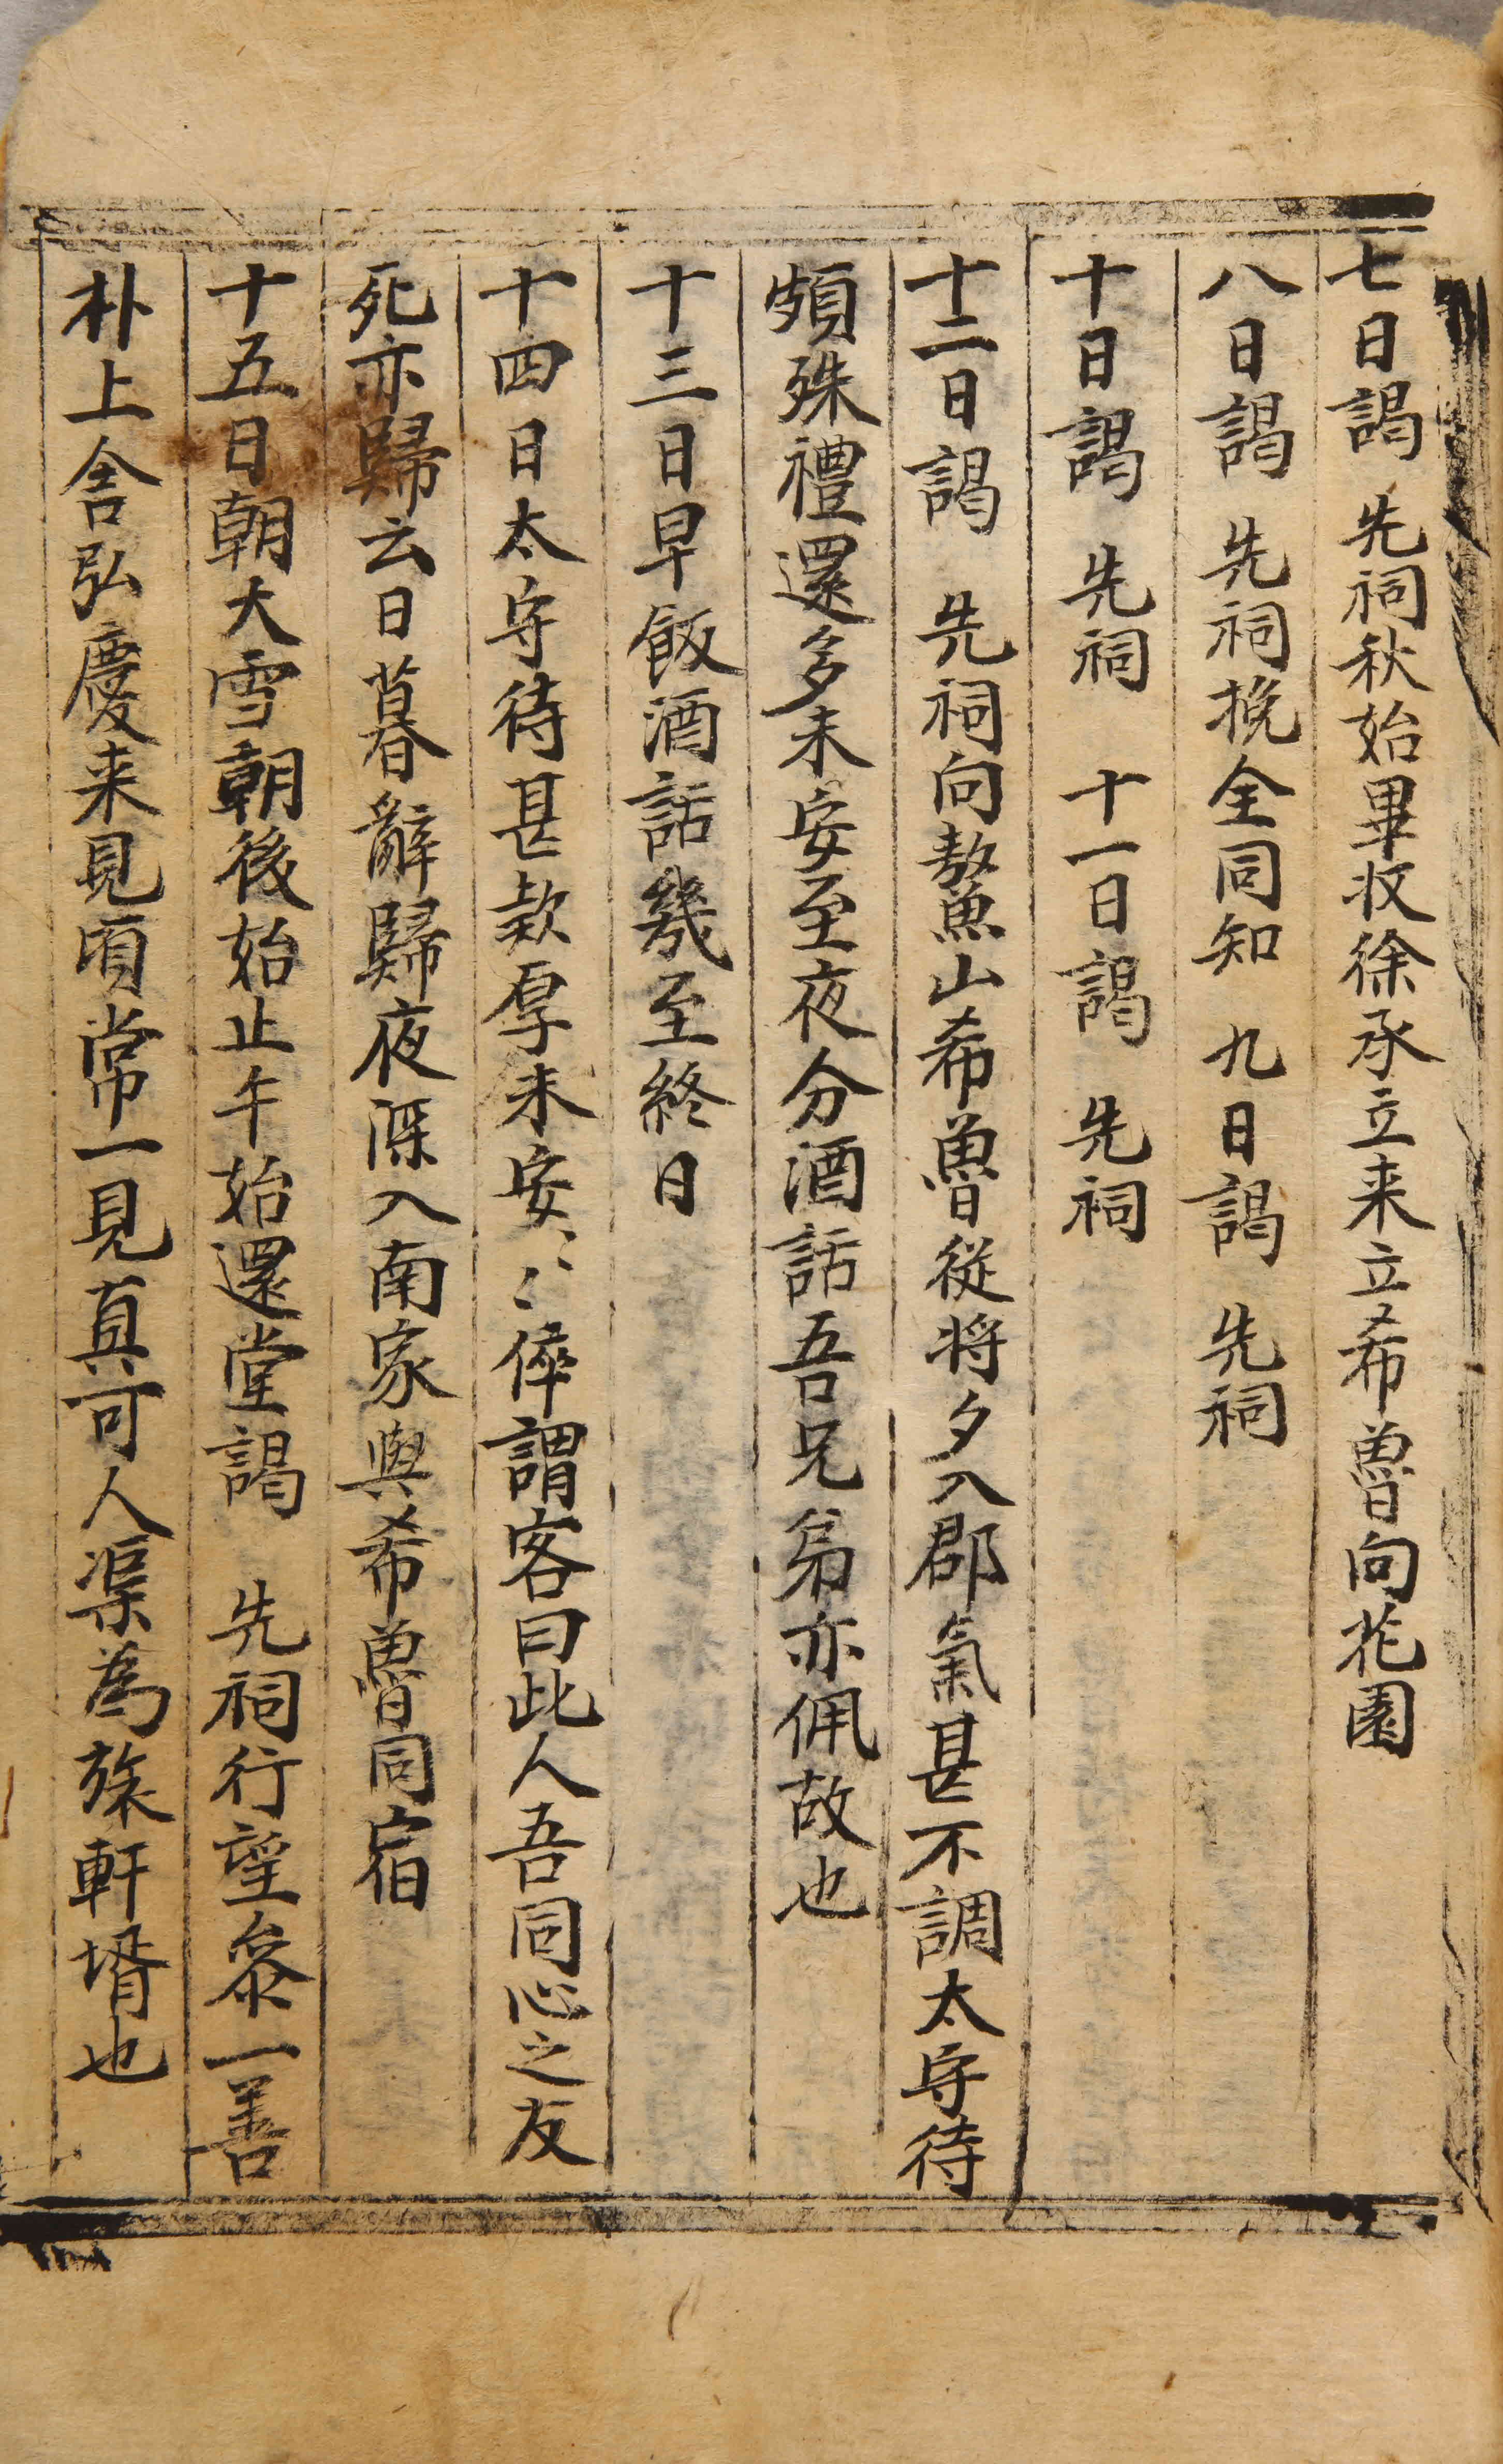 七日謁 先祠秋始畢收徐承立来立希魯向花園
八日謁 先祠挽全同知 九日謁 先祠
十日謁 先祠 十一日謁 先祠
十二日謁 先祠向鰲山希魯從将夕入郡氣甚不調太守待
頗殊禮還多未安至夜分酒話吾兄弟亦佩故也
十三日早飯酒話幾至終日
十四日太守待甚款厚未安〻〻倅謂客曰此人吾同心之友
死亦歸云日暮辭歸夜深入南家與希魯同宿
十五日朝大雪朝後始止午始還堂謁 先祠行望叅一善
朴上舍弘慶来見頃常一見真可人渠為旅軒壻也